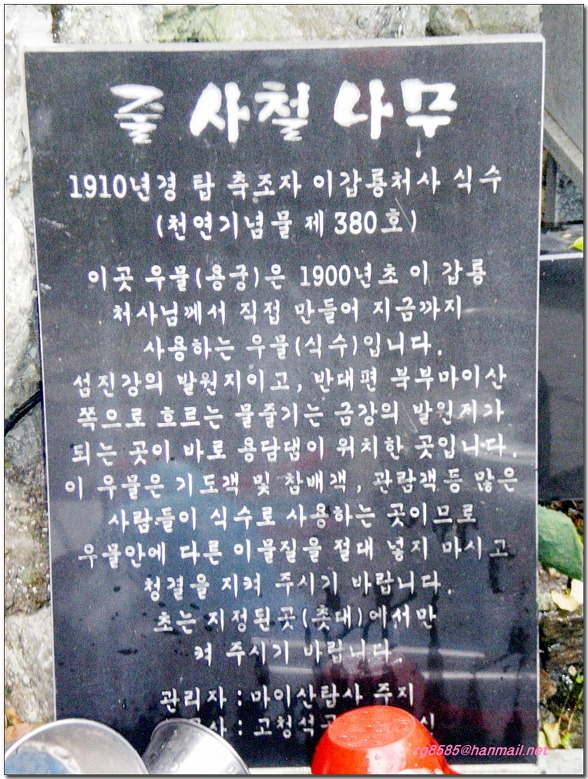 줄 사철 나무
1910년경 탑 축조자 이갑룡처사 식수
(천연기념물 제 380호)
이곳 우물(용궁)은 1900년초 이 갑룡
처사님께서 직접 만들어 지금까지
사용하는 우물(식수)입니다.
섬진강의 발원지이고, 반대편 북부마이산
쪽으로 흐르는 물줄기는 금강의 발원지가
되는 곳이 바로 용담댐이 위치한 곳입니다.
이 우물은 기도객 및 참배객, 관람객등 많은
사람들이 식수로 사용하는 곳이므로
우물안에 다른 이물질을 절대 넣지 마시고
청결을 지켜 주시기 바랍니다.
초는 지정된곳(촛대)에서만
켜 주시기 바랍니다.
관리자 : 마이산탑사 주지
사 : 고청석
rg8585@hanmail.net